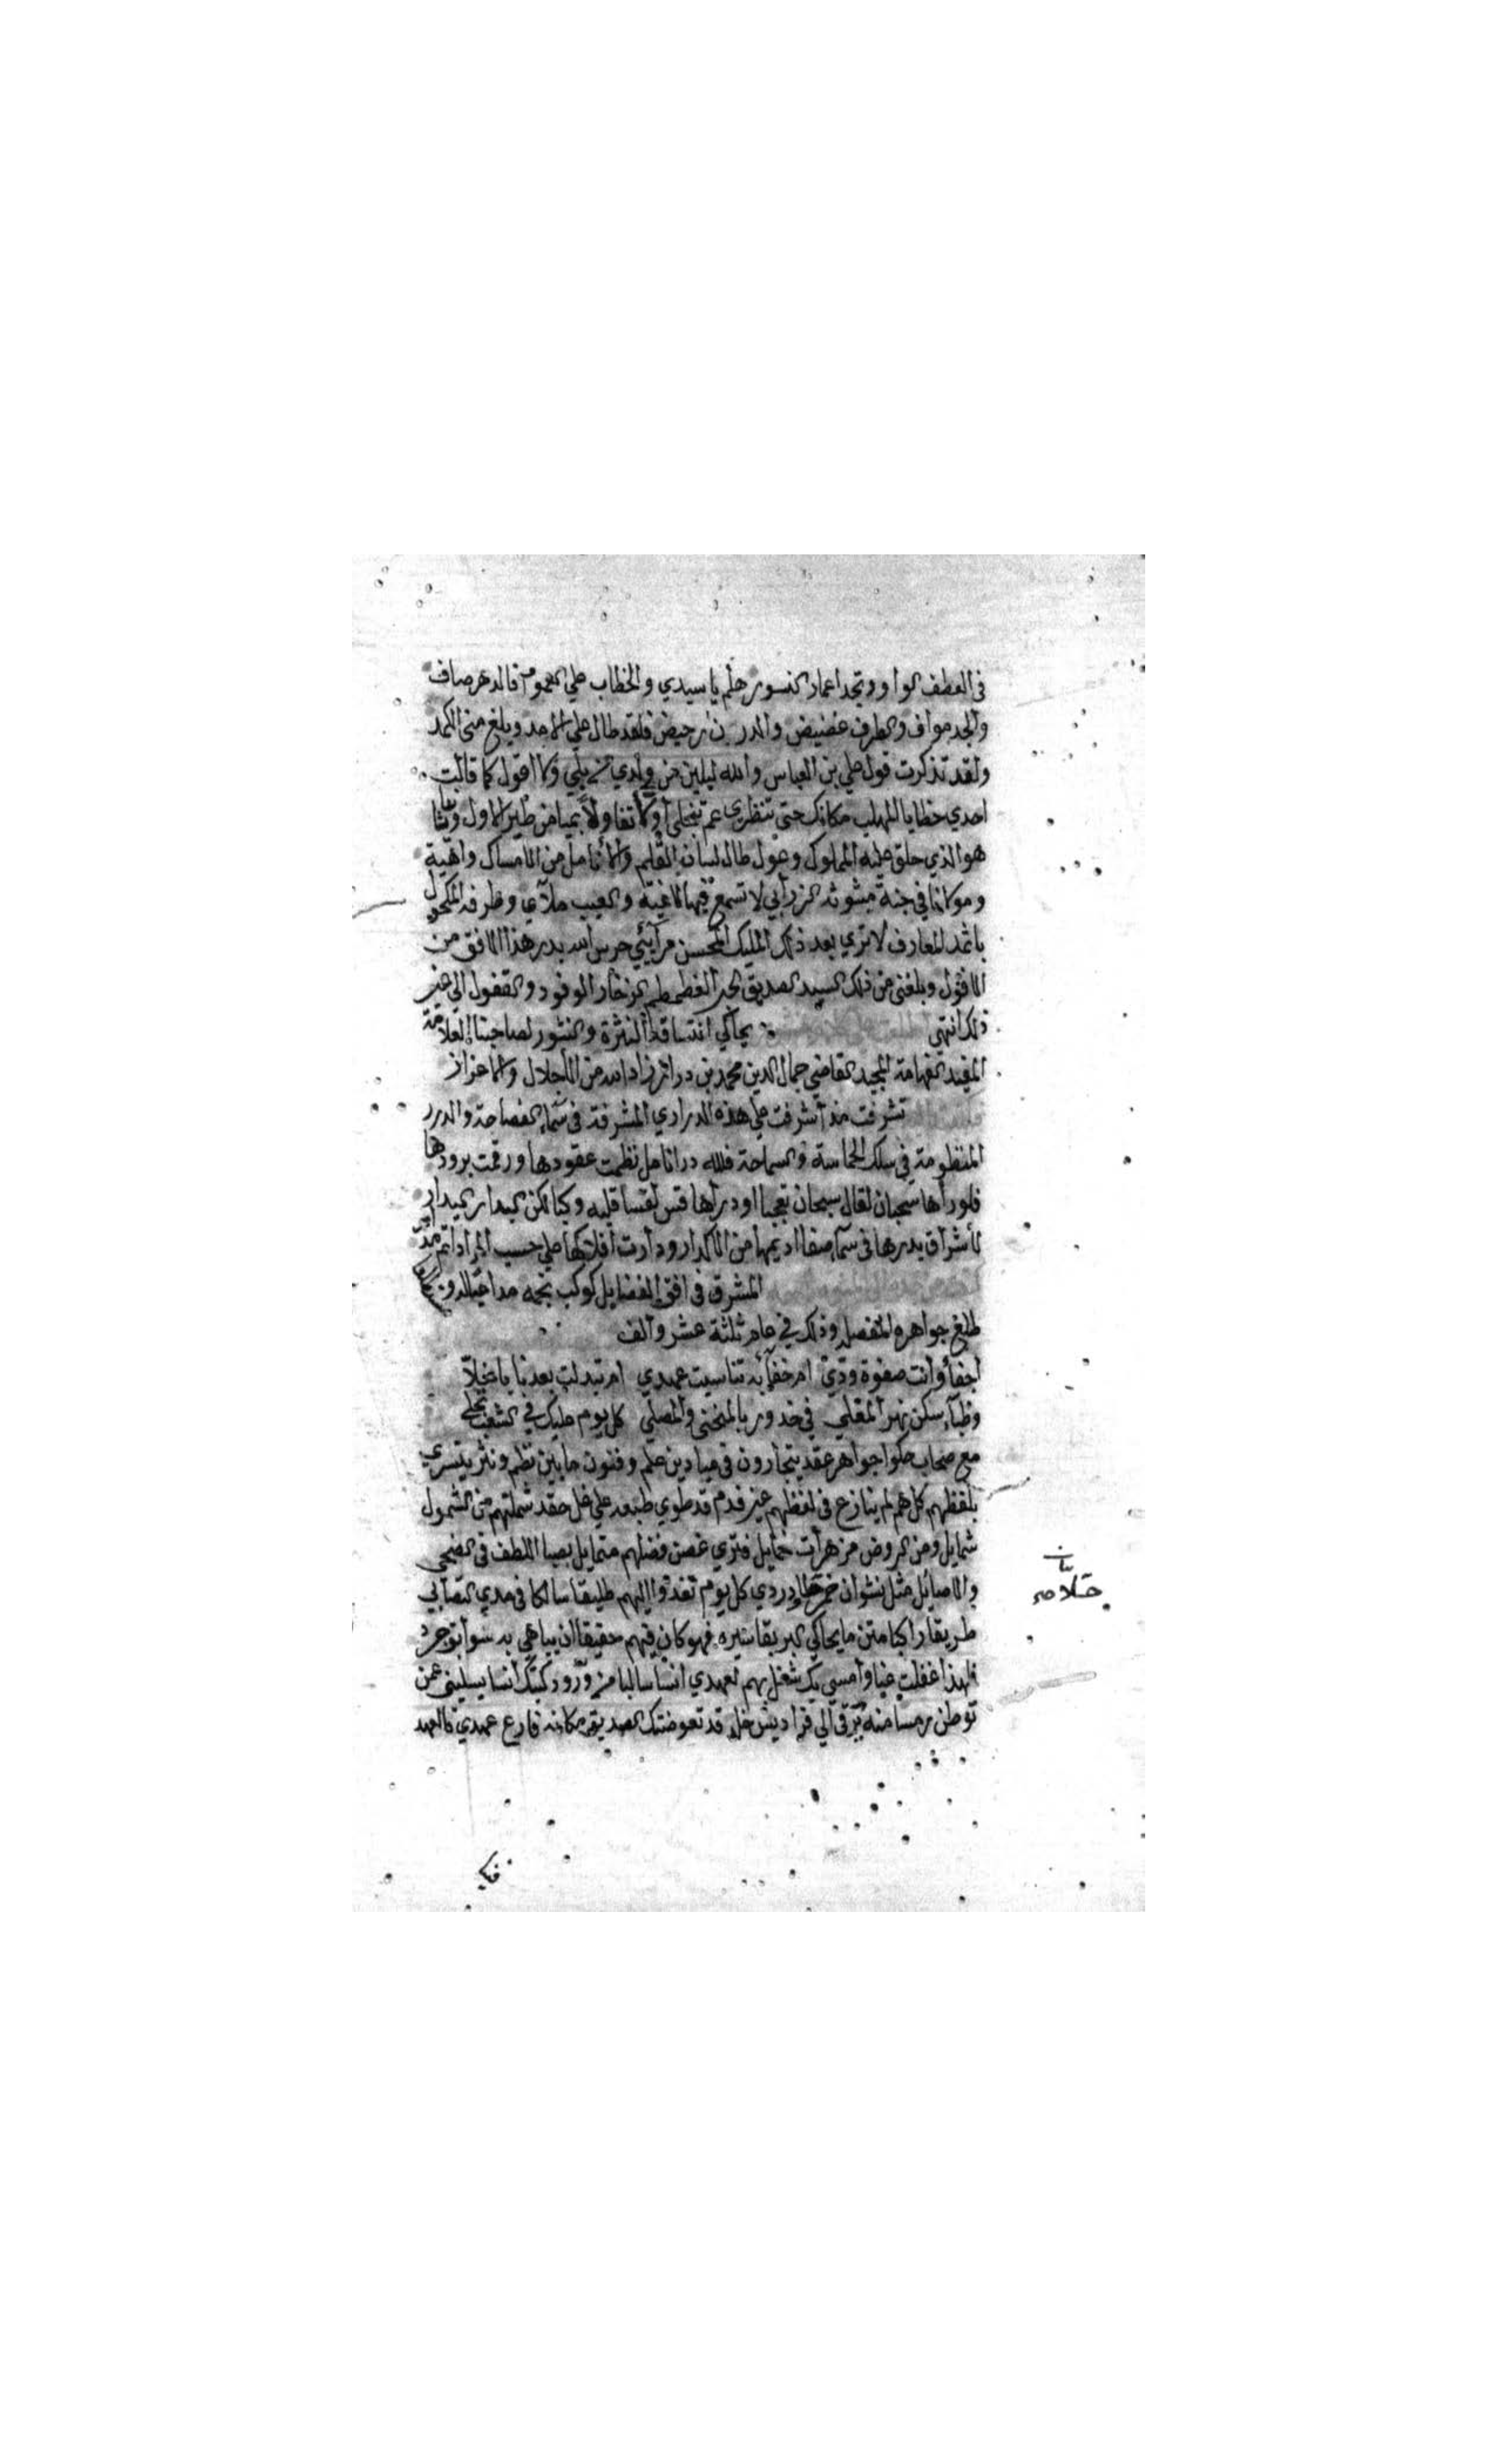 في العطف الواو وتجد اعمار النسور هلم يا سيدي والخطاب علي العموم فالدهر صاف
والجد مواف والطرف غضيض والدرن رحيض فلقد طال علي الامد وبلغ مني الكمد
ولقد تذكرت قول علي بن العباس والله ليلين ولا اقول كما قالت
احدي خطايا المهلب مكانك حتي تنظري عم تنجلي اولا تفاولا بميامن طير الاول
هو الذي حلق عليه المملوك وعول طال لسان القلم والانامل من الامساك واهية
ومولانا في جنة مبثوثه الزرابي لا تسمع فيها لاغية والعيب ملآي وظرفه المكحول
باثمد المعارف لا تري بعد ذلك المليك المحسن مرآيئي حرس الله بدر هذا الافق من
الافول وبلغني من ذلك السيد الصديق البحر الغطمطم الزخار الوفود والقفول الي غير
ذلك انتهي يحاكي اتساقه النثرة والنثور لصاحبنا العلامة
المفيد الفهامة المجيد القاضي جمال الدين محمد بن دراز زاده الله من الاجلال والاعزاز
تشرفت مذ أشرفت علي هذه الدراري المشرقة في سماء الفصاحة والدرر
المنظومة في سلك الحماسة والسماحة فلله در انامل نظمت عقودها ورقمت برودها
فلو رأها سحبان لقال سبحان تعجبا او درأها قس لقسا قلبه وكبا لكن البدار البدار
لأشراق بدرها في سماء صفا اديمها من الاكدار ودارت افلاكها علي حسب المراد
المشرق في افق الفضايل كوكب نجمه مداحيا لدو
طلع جواهره المفصله وذلك في عام ثلثة عشر وألف
اجفاً وأنت صفوة ودي ام خفآ به تناسيت عهدي ام تبدلت بعدنا يا خلآ
وظبآء سكن نهر المقلي في خدور بالمنحني والمصلي كل يوم عليك في الشعب تجلي
مع صحاب حكوا جواهر عقد يتجارون في ميادين علم وفنون ما بين نظم ونثر
بلفظهم كل هم لم ينازع في لفظهم غير فدم قد طوي طبعه علي غل حقد شملتهم من الشمول
شمايل ومن الروض مزهرات خمايل فتري غصن فضلهم متمايل بصبا اللطف في الضحي
والاصائل مثل نشوان كل يوم تغدو اليهم طليقا سالكا في مدي التصابي
طريقا راكبا متن ما يحاكي البريقا سيره فهو كان فيهم حقيقا ان يباهي به سوابق جرد
فلهذا غفلت عنا وأمسي بك شغل بهم لعهدي انسا سالبا من ورود كتبك أنسا يسليني عمن
توطن رمسا منه يرقي الي فراديش خلد قد تعوضتك الصديق مكانه فارع عهدي فالعهد